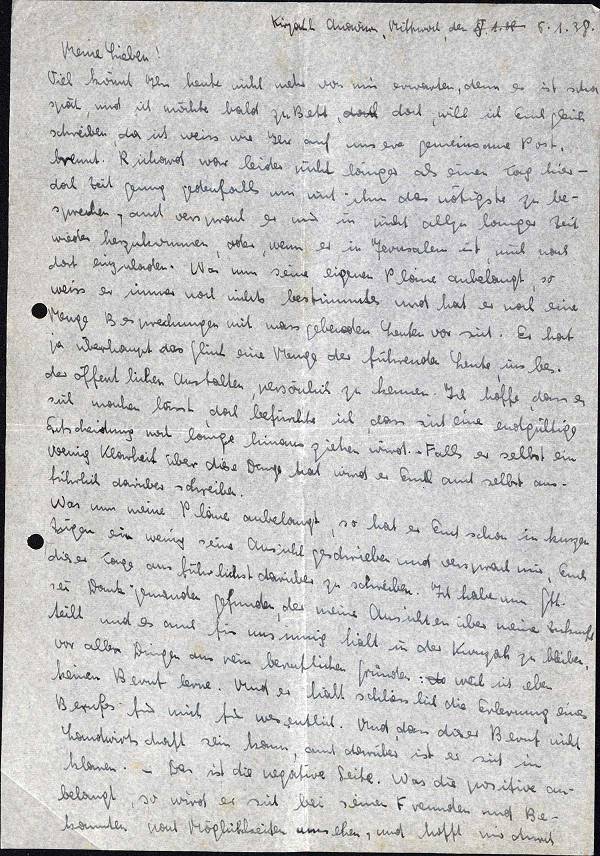 Kirjath Anavim, Mittwoch, den 5.1.38.
Meine Lieben!
Viel könnt Ihr heute nicht mehr von mir erwarten, denn es ist schon
spät, und ich möchte bald zu Bett, doch will ich Euch gleich
schreiben, da ich weiss wie Ihr auf unsere gemeinsame Post
brennt. Richard war leider nicht länger als einen Tag hier –
doch Zeit genug jedenfalls um mit ihm das nötigste zu be-
sprechen, auch versprach er mir in nicht allzu langer Zeit
wieder herzukommen, oder, wenn er in Jerusalem ist, mich nach
dort einzuladen. Was nun seine eigenen Pläne anbelangt, so
weiss er immer noch nichts bestimmtes und hat er noch eine
Menge Besprechungen mit massgebenden Leuten vor sich. Er hat
ja überhaupt das Glück eine Menge der führenden Leute, ins bes.
der öffentlichen Anstalten, persönlich zu kennen. Ich hoffe dass es
sich machen lässt, doch befürchte ich, dass sich eine endgültige
Entscheidung noch lange hinaus ziehen wird. – Falls er selbst ein
wenig Klarheit über diese Dinge hat wird er Euch auch selbst aus-
führlich darüber schreiben.
Was nun meine Pläne anbelangt, so hat er Euch schon in kurzen
Zügen ein wenig seine Ansicht geschrieben und versprach mir, Euch
dieser Tage ausführlichst darüber zu schreiben. Ich habe nun Gtt.
sei Dank jemanden gefunden, der meine Ansichten über meine Zukunft
teilt und es auch für unsinnig hält in der Kwuzah zu bleiben,
vor allen Dingen aus rein beruflichen Gründen: weil ich eben
keinen Beruf lerne. Und er hält schliesslich die Erlernung eines
Berufes für mich für wesentlich. Und dass dieser Beruf nicht
Landwirtschaft sein kann, auch darüber ist er sich im
klaren. – Das ist die negative Seite. Was die positive an-
belangt, so wird er sich bei seinen Freunden und Be-
kannten nach Möglichkeiten umsehen, und hofft mir durch